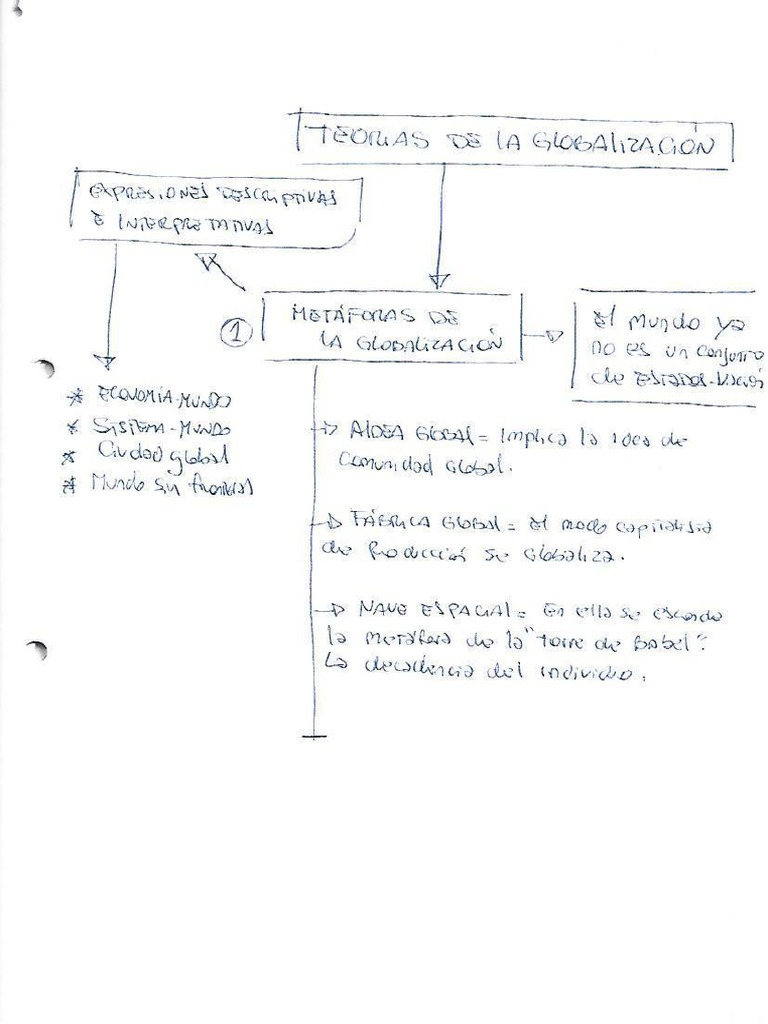 TEORIAS DE LA GLOBALIZACIÓN
EXPRESIONES DESCRIPTIVAS
E INTERPRETATIVAS
1
METÁFORAS DE
LA GLOBALIZACIÓN
El mundo ya
no es un conjunto
de ESTADOS-Nación
* ECONOMÍA-MUNDO
* SISTEMA-MUNDO
* Ciudad global
* Mundo sin fronteras
ALDEA GLOBAL = Implica la idea de
Comunidad Global.
FÁBRICA GLOBAL = El modo capitalista
de Producción se Globaliza.
NAVE ESPACIAL = En ella se esconde
la metáfora de la "torre de Babel".
La decadencia del individuo.